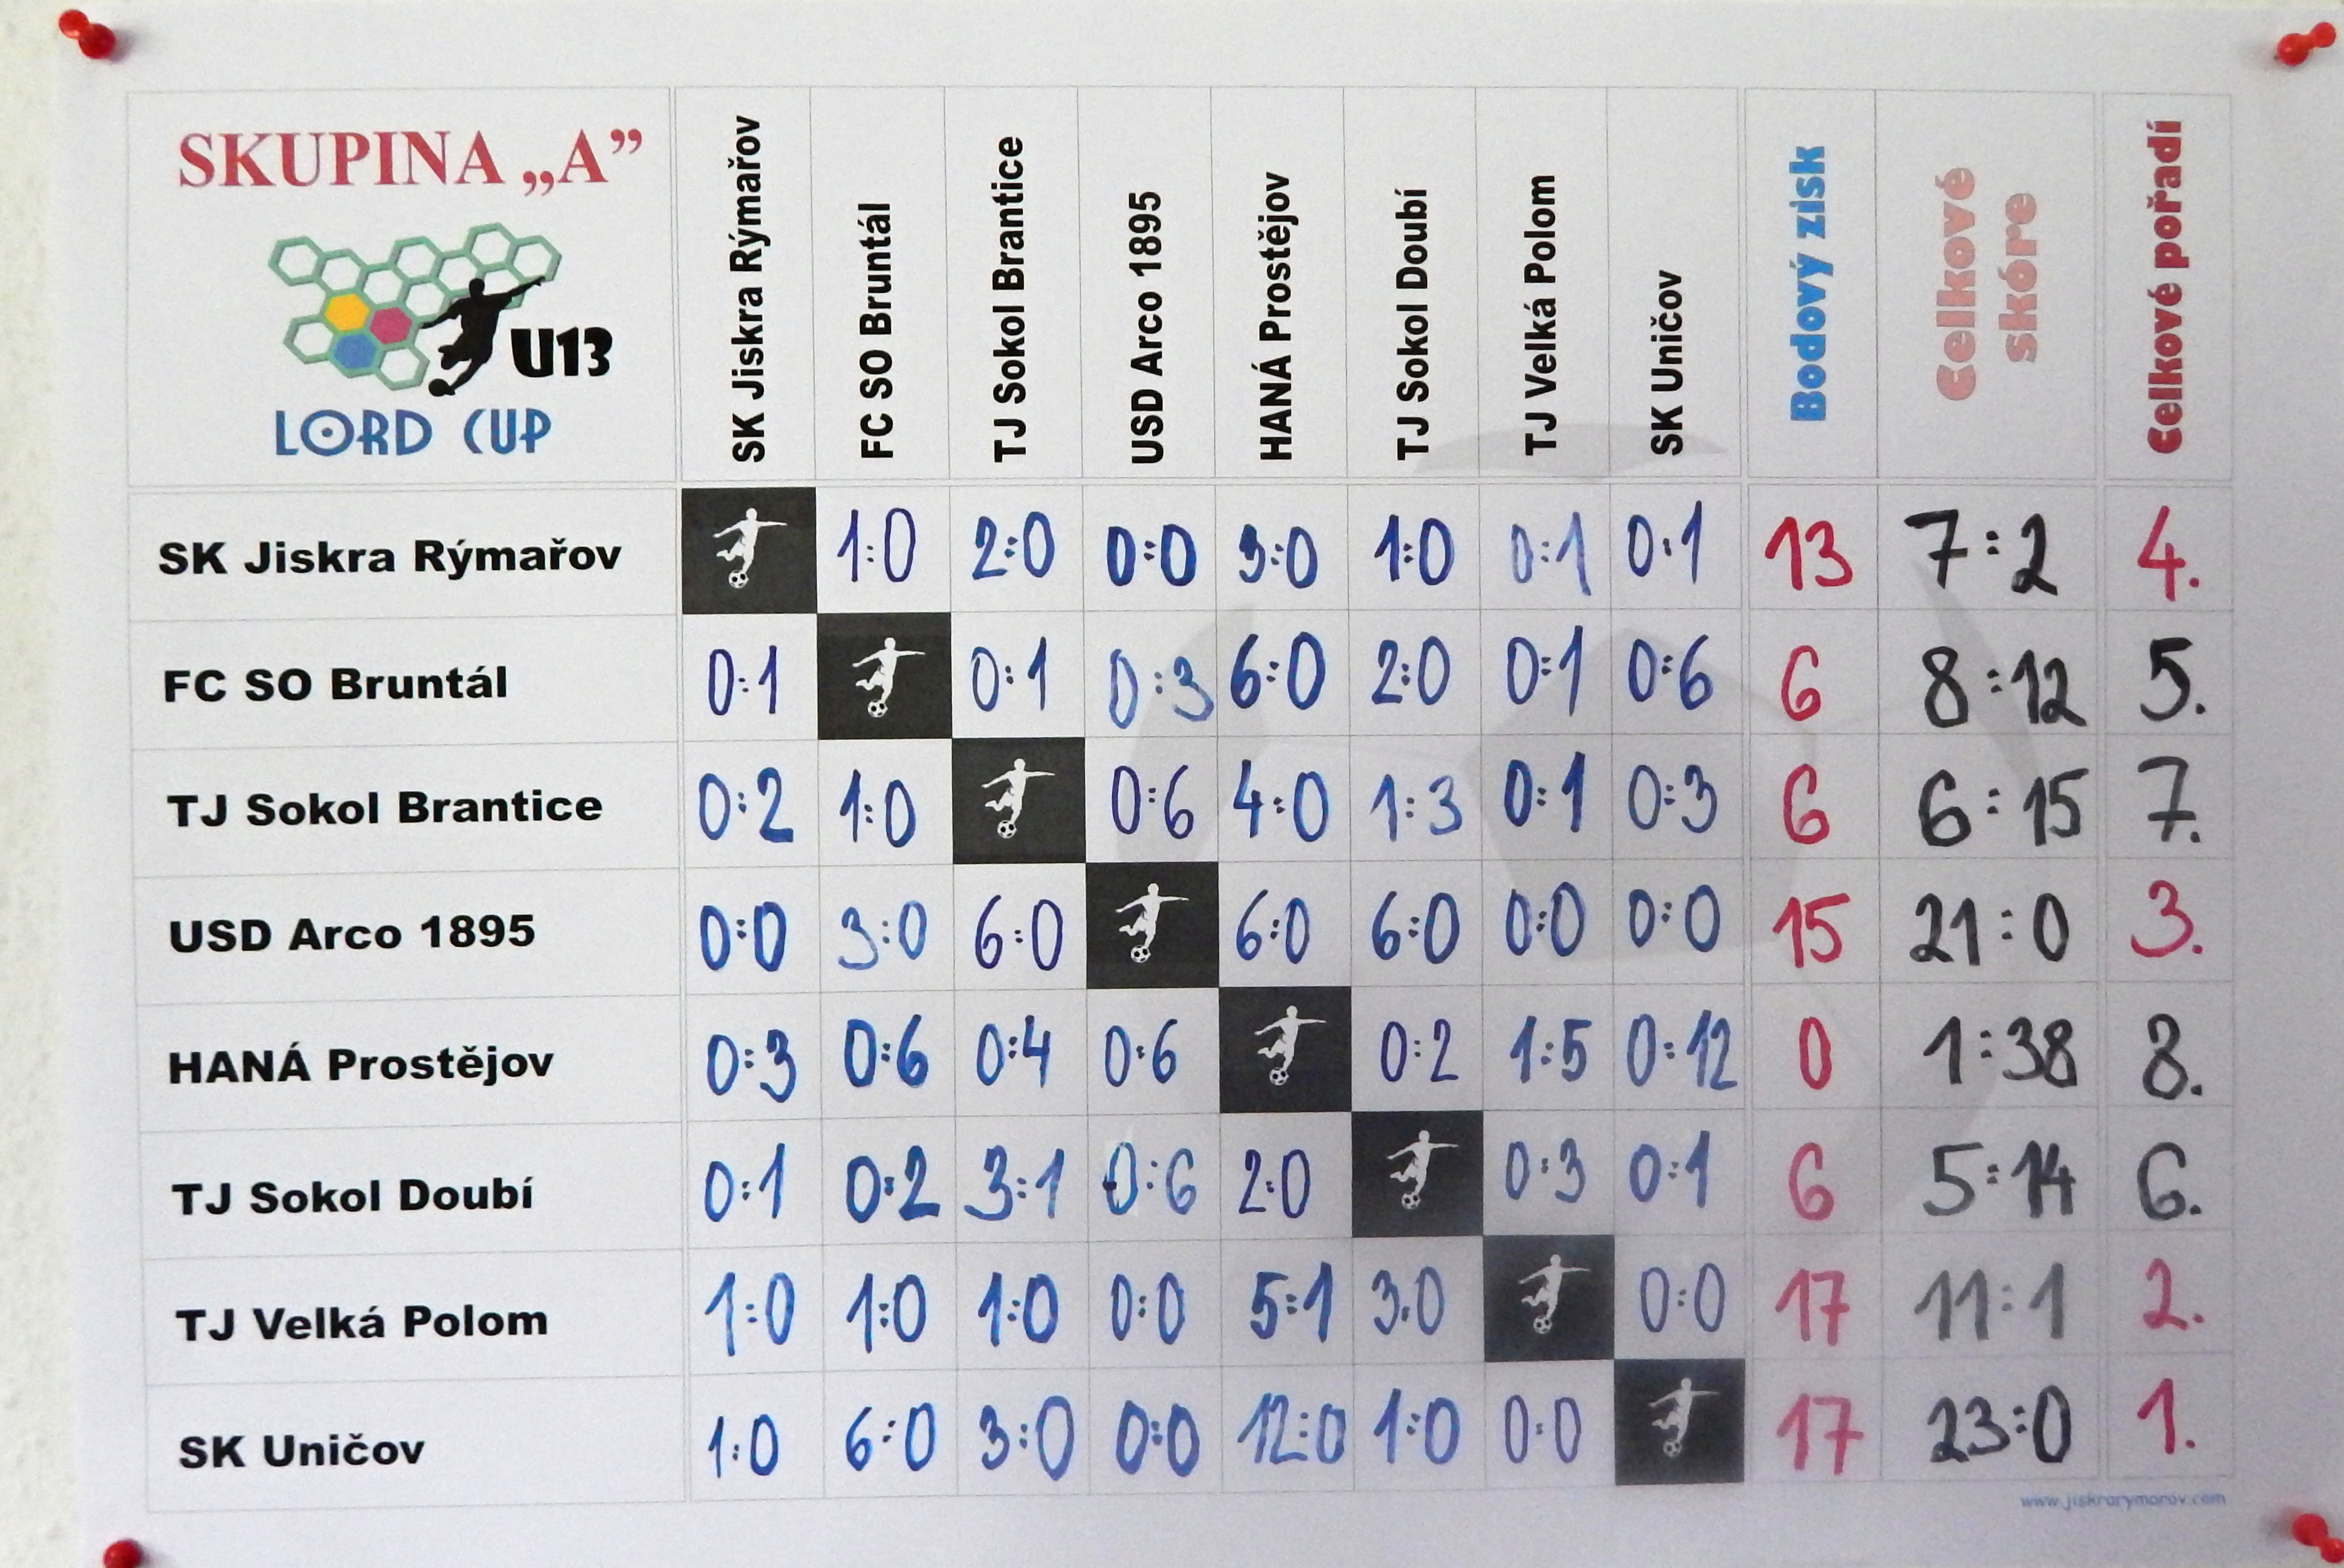 SKUPINA „A”
U13
LORD CUP
SK Jiskra Rýmařov
FC SO Bruntál
TJ Sokol Brantice
USD Arco 1895
HANÁ Prostějov
TJ Sokol Doubí
TJ Velká Polom
SK Uničov
Bodový zisk
Celkové
skóre
Celkové pořadí
SK Jiskra Rýmařov 1:0 2:0 0:0 3:0 1:0 0:1 0:1 13 7:2 4.
FC SO Bruntál 0:1 0:1 0:3 6:0 2:0 0:1 0:6 6 8:12 5.
TJ Sokol Brantice 0:2 1:0 0:6 4:0 1:3 0:1 0:3 6 6:15 7.
USD Arco 1895 0:0 3:0 6:0 6:0 6:0 0:0 0:0 15 21:0 3.
HANÁ Prostějov 0:3 0:6 0:4 0:6 0:2 1:5 0:12 0 1:38 8.
TJ Sokol Doubí 0:1 0:2 3:1 0:6 2:0 0:3 0:1 6 5:14 6.
TJ Velká Polom 1:0 1:0 1:0 0:0 5:1 3:0 0:0 17 11:1 2.
SK Uničov 1:0 6:0 3:0 0:0 12:0 1:0 0:0 17 23:0 1.
www.jiskrarymarov.com